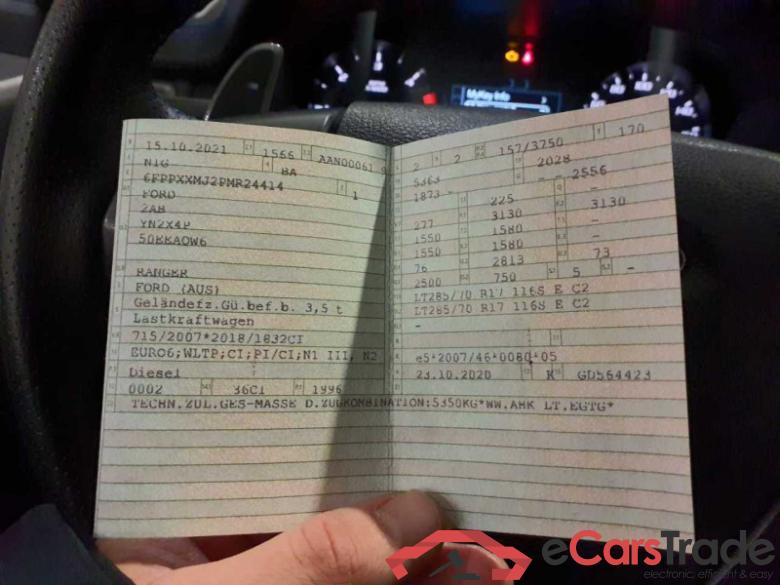 15.10.2021 1566 AAN00061 9
N1G BA
6FPPXXMJ2PMR24414 1
FORD
2AB
YN2X4P
50EEAOW6
RANGER
FORD (AUS)
Geländefz.Gü.bef.b. 3,5 t
Lastkraftwagen
715/2007*2018/1832CI
EURO6;WLTP;CI;PI/CI;N1 III, N2
Diesel
0002 36CI 1996
2 2 157/3750 170
5363 2028
1873 - - 2556
225 -
277 3130 3130
1550 1580 -
1550 1580 -
76 2813 73
2500 750 5 -
LT285/70 R17 116S E C2
LT285/70 R17 116S E C2
-
e5*2007/46*0080*05
23.10.2020 K GD564423
TECHN.ZUL.GES-MASSE D.ZUGKOMBINATION:5350KG*WW.AHK LT.EGTG*
MyKey Info
eCarsTrade
electronic, efficient & easy